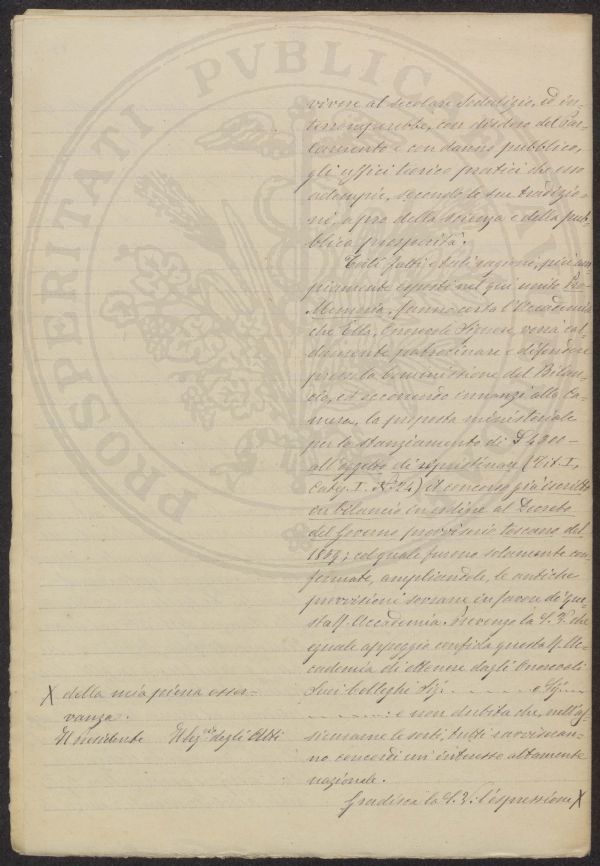 vivere al secolare sodalizio, ed in-
terromperebbe, con disdoro del Par-
lamento e con danno pubblico,
gli uffici teorico pratici che esso
adempie, secondo le sue tradizio-
ni, a pro della scienza e della pub-
blica prosperità.
Tali fatti e tali ragioni, più am-
piamente esposti nel qui unito Pro-
Memoria, fanno certa l'Accademia
che Ella, Onorevole Signore, vorrà cal-
damente patrocinare e difendere
presso la Commissione del Bilan-
cio, ed occorrendo innanzi alla Ca-
mera, la proposta ministeriale
per lo stanziamento di £ 4200 -
all'oggetto di ripristinare (Tit. I,
Categ. I. N° 24) il concorso già iscritto
in bilancio in ordine al Decreto
del Governo provvisorio toscano del
1859; col quale furono solamente con-
fermate, ampliandole, le antiche
provvisioni sovrane in favore di que-
sta R. Accademia. Prevengo la S. V. che
eguale appoggio confida questa R. Ac-
cademia di ottenere dagli Onorevoli
Suoi Colleghi Sig. . . . . . . . e Sig. . . .
. . . . . . . : e non dubita che, nell'as-
sicurarne le sorti, tutti ravviseran-
no concordi un interesse altamente
nazionale.
Gradisca la S. V. l'espressione X
X della mia piena osser-
vanza.
Il Presidente Il Seg.rio degli Atti
PROSPERITATI PVBLICAE